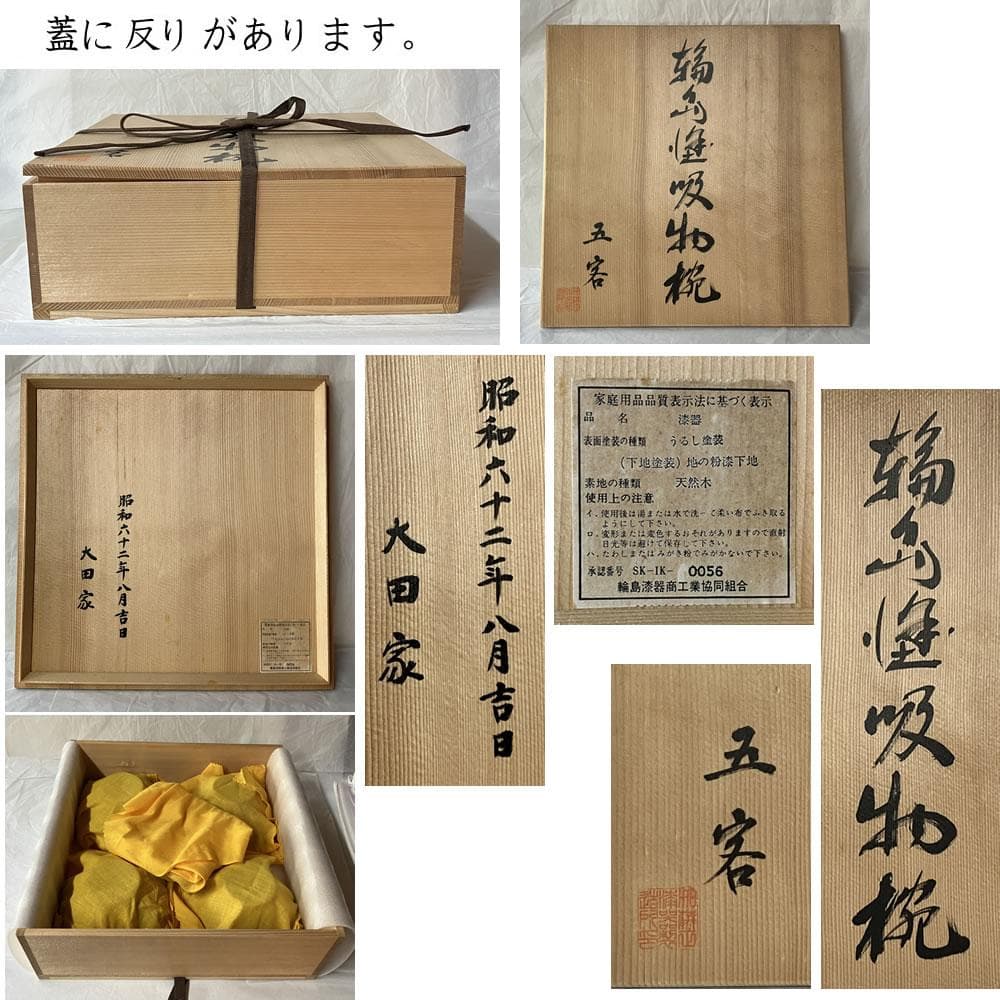 蓋に反りがあります。
吸物椀
輪島塗吸物椀
五客
昭和六十二年八月吉日
大田家
昭和六十二年八月吉日
大田家
家庭用品品質表示法に基づく表示
品 名 漆器
表面塗装の種類 うるし塗装
(下地塗装) 地の粉漆下地
素地の種類 天然木
使用上の注意
イ.使用後は湯または水で洗ーご柔い布でふき取る
ようにして下さい。
ロ.変形または変色するおそれがありますので直射
日光等は避けて保存して下さい。
ハ.たわしまたはみがき粉でみがかないで下さい。
承認番号 SK-IK- 0056
輪島漆器商工業協同組合
輪島塗吸物椀
五客